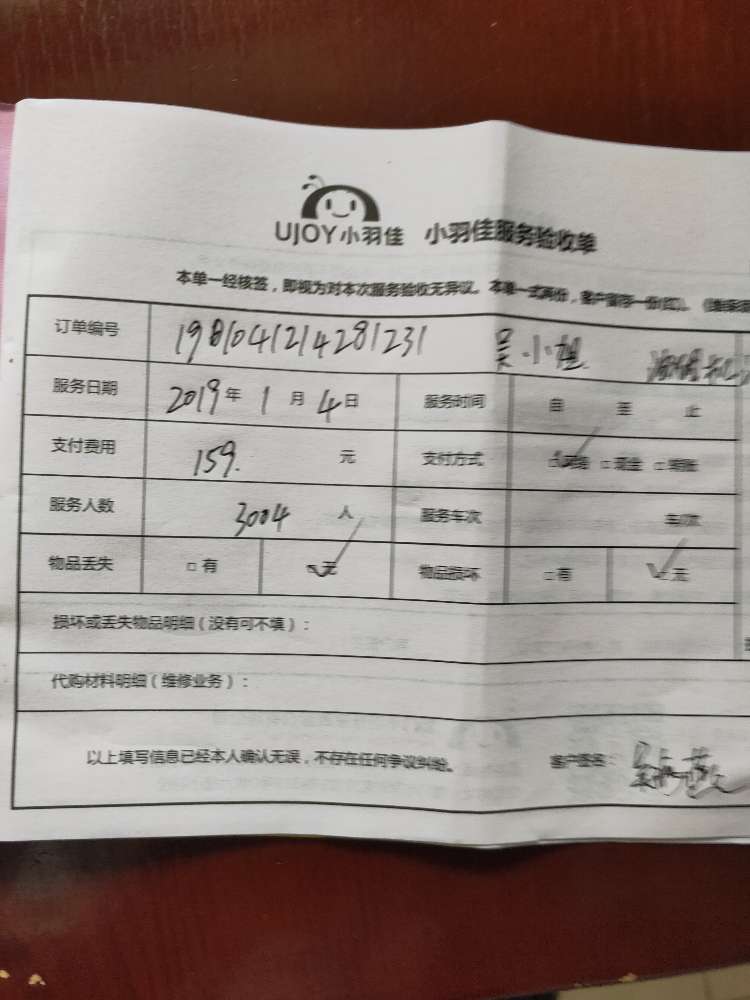 UJOY小羽佳 小羽佳服务验收单
本单一经核签，即视为对本次服务验收无异议。本单一式两份，客户留存一份(红)。
订单编号 1981041214281231 吴小姐
服务日期 2019年 1月 4日 服务时间 自 至 止
支付费用 159. 元 支付方式 □现金
服务人数 3004 人 服务车次 车/次
物品丢失 □有 无 物品损坏 □有 □无
损坏或丢失物品明细（没有可不填）：
代购材料明细（维修业务）：
以上填写信息已经本人确认无误，不存在任何争议纠纷。 客户签名：